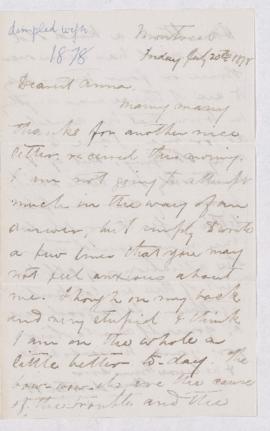 dimpled wife
1878
Montreal
Friday July 20th 1878
Dearest Anna
Many many
thanks for another nice
letter received this morning.
I am not going to attempt
much in the way of an
answer, but simply to write
a few lines that you may
not feel anxious about
me. Though on my back
and very stupid I think
I am on the whole a
little better to-day. The
are the cause
of the trouble and the